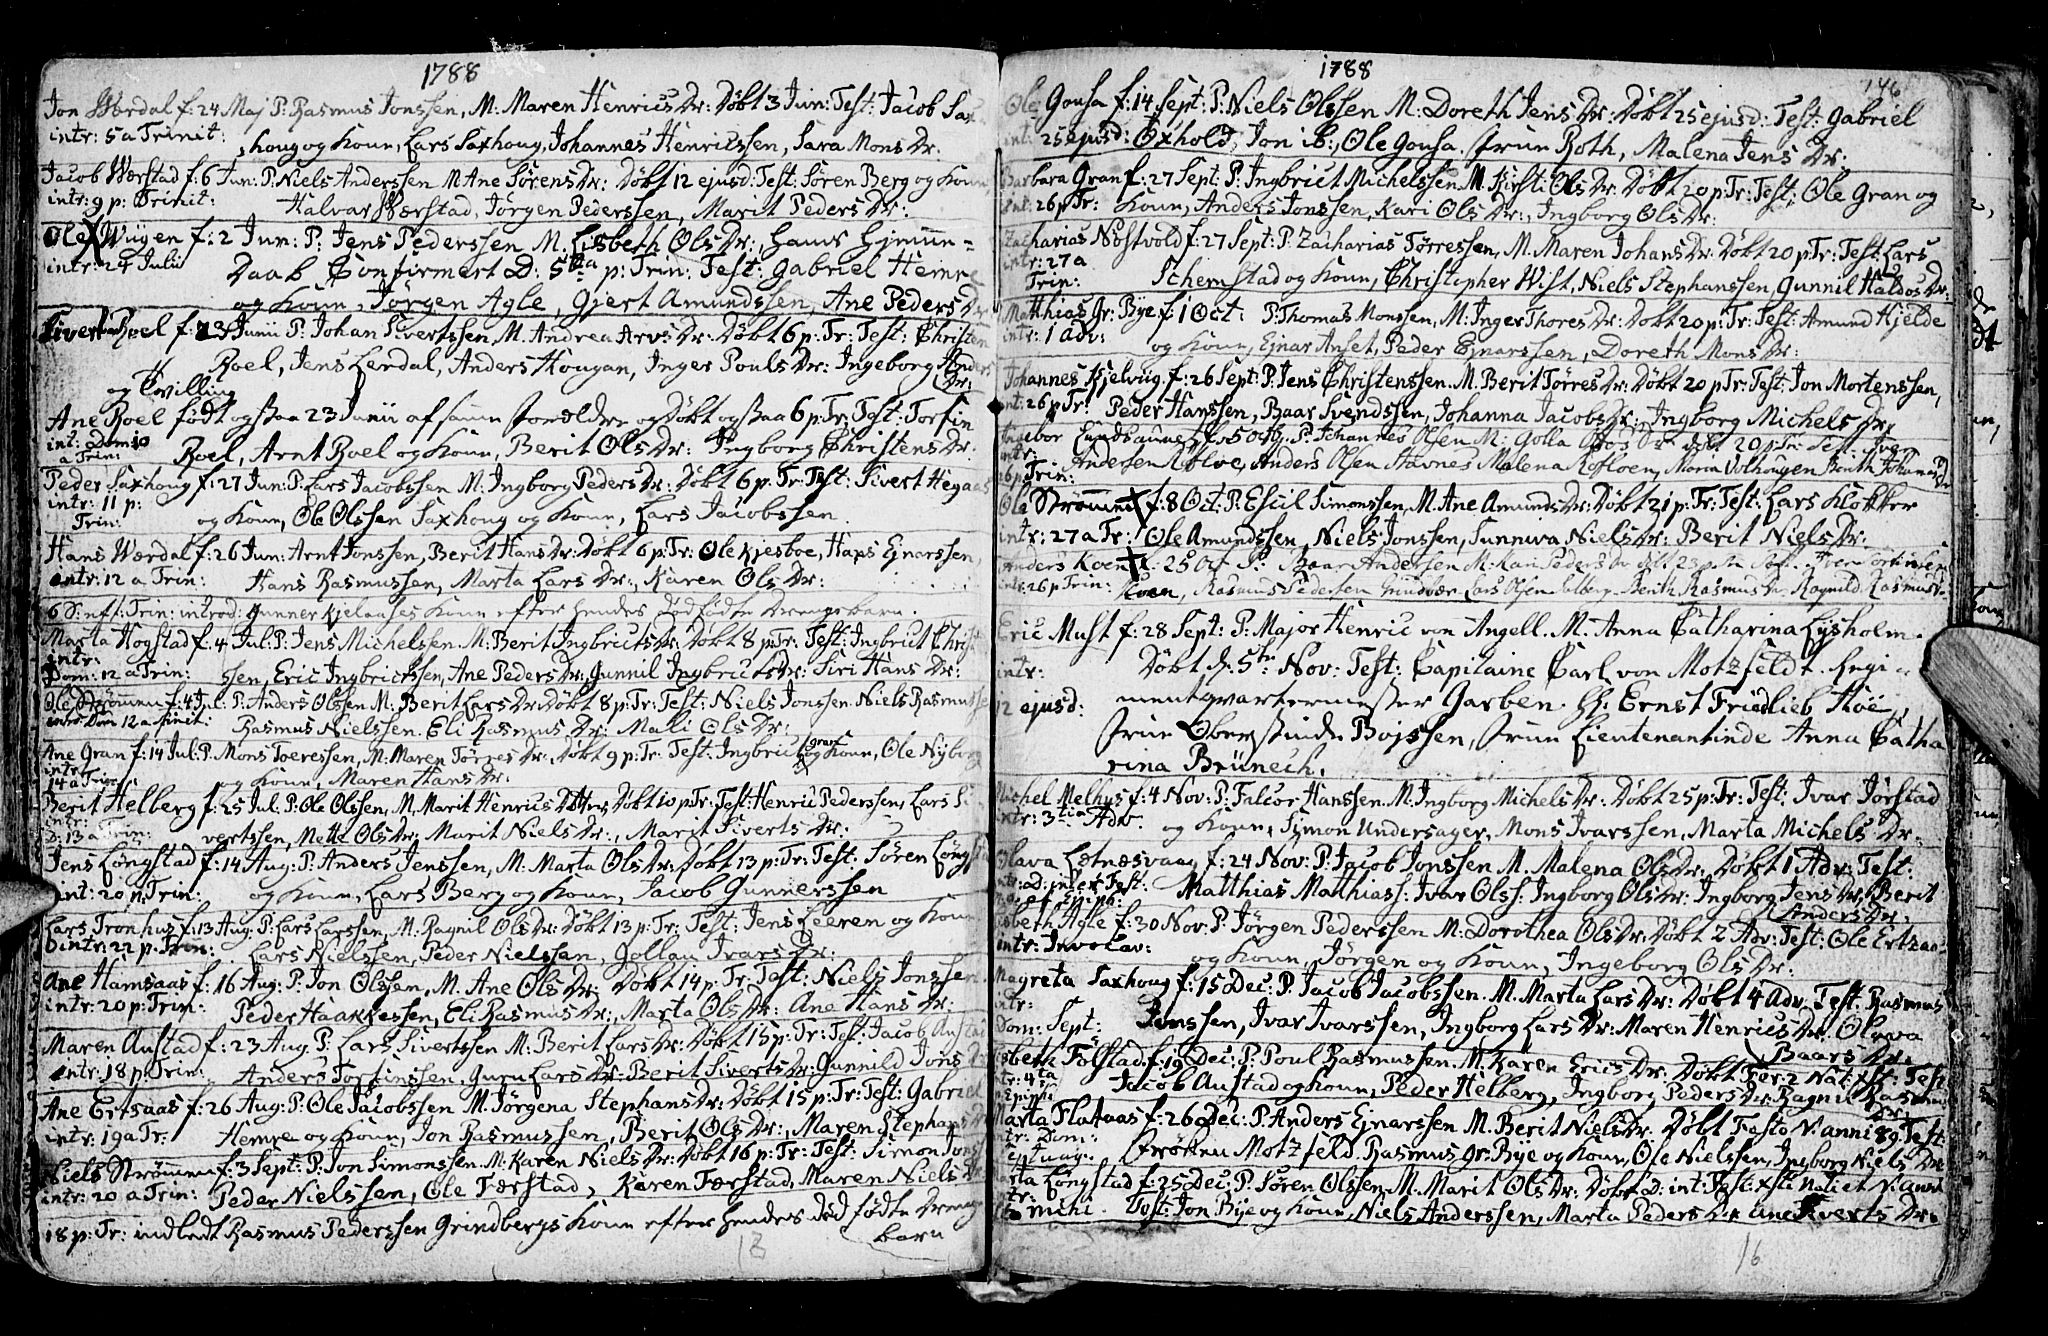 1788
Jon Wærdal f: 24 Maj P: Rasmus Jonssen, M: Maren Henrics Dr: Döbt 3 Jun: Test: Jacob Sax-
intr: 5 a Trinit: houg og Kone, Lars Saxhoug, Johannes Henricssen, Sara Mons Dr.
Jacob Wærstad f: 6 Jun: P: Niels Anderssen M Ane Sörens Dr: Döbt 12 ejusd: Test: Sören Berg og Kone
intr: 9 p: Trinit: Halvar Wærstad, Jörgen Pederssen, Marit Peders Dr:
Ole Wügen f: 2 Jun: P: Jens Pederssen M: Lisbeth Ols Dr:, hans Hjemme=
intr: 24 Julii Daab Confirmert D: 5ta p: Trin: Test: Gabriel Hemre
og Kone, Jörgen Agle, Gjert Amundssen, Ane Peders Dr
Sivert Roel f: 23 Junii P: Johan Sivertssen, M: Andrea Arns Dr: Döbt 6 p: Tr: Test: Christen
Roel, Jens Lerdal, Anders Hougan, Inger Pouls Dr: Ingeborg Anders
Dr:
og Tvilling
Ane Roel födt ogsaa 23 Junii af samme Forældre og Döbt ogsaa 6 p: Tr: Test: Torfin
int: Dom 10
a Trin: Roel, Arnt Roel og Kone, Berit Ols Dr: Ingborg Christens Dr:
Peder Saxhoug f: 27 Jun: P: Lars Jacobssen M: Ingborg Peders Dr: Döbt 6 p: Tr: Test: Sivert Hegaas
intr: 11 p:
Trin: og Kone, Ole Olssen Saxhoug og Kone, Lars Jacobssen.
Hans Wærdal f: 26 Jun: Arnt Jonssen, Berit Hans Dr: Döbt 6 p: Tr: Ole Kjesboe, Hans Ejnarssen,
intr: 12 a Trin: Hans Rasmussen, Marta Lars Dr:, Karen Ols Dr:
6 S: eft: Trin: introd: Gunner Kone efter hendes dödfödte Drengebarn.
Marta Hogstad f: 4 Jul: P: Jens Michelssen M: Berit Ingbricts Dr: Döbt 8 p: Tr: Test: Ingbrict Christ
intr:
Dom: 12 a Trin: sen, Eric Ingbrictssen, Ane Peders Dr: Gunnil Ingbricts Dr: Siri Hans Dr:
Ole Strömmen f: 4 Jul: P: Anders Olssen M: Berit Lars Dr: Döbt 8 p: Tr: Test: Niels Jonssen Niels Rasmussen
intr: Dom 12 a Trinit: Rasmus Nielssen. Eli Rasmus Dr: Mali Ols Dr:
Ane Gran f: 14 Jul: P: Mons Toeressen, M: Maren Törres Dr: Döbt 9 p: Tr: Test: Ingbrict Gran og Kone, Ole Nyborg
intr:
14 a Trin: og Kone, Maren Hans Dr:
Berit Helberg f: 25 Jul: P: Ole Olssen, M: Marit Henrics Dotter, Döbt 10 p: Tr: Test: Henric Pederssen, Lars Si
intr:
D: 13 a Trin: vertssen, Mette Ols Dr: Marit Niels Dr:, Marit Siverts Dr:
Jens Löngstad f: 14 Aug: P: Anders Jenssen, M: Marta Ols Dr: Döbt 13 p: Tr: Test: Sören Löngstad
int: 20 p: Trin: og Kone, Lars Berg og Kone, Jacob Gunnerssen
Lars Tronhus f: 13 Aug: P: Lars Larssen, M: Ragnil Ols Dr: Döbt 13 p: Tr: Test: Jens Leeren og Kone
intr: 22 p: Trin: Lars Nielssen, Peder Nielssen, Gollau Ivars Dr:
Ane Hamsaas f: 16 Aug: P: Jon Olssen, M: Ane Ols Dr: Döbt 14 p: Tr: Test: Niels Jonssen
intr: 20 p: Trin: Peder Haakkessen, Eli Rasmus Dr:, Marta Ols Dr: Ane Hans Dr:
Maren Austad f: 23 Aug: P: Lars Sivertssen M: Berit Lars Dr: Döbt 15 p: Tr: Test: Jacob Austad
intr: 18 p: Trin: Anders Torfinssen, Guru Lars Dr: Berit Siverts Dr: Gunnild Jons Dr
Ane Ertsaas f: 26 Aug: P: Ole Jacobssen M: Jörgena Stephans Dr: Döbt 15 p: Tr: Test: Gabriel
intr: 19 a Tr: Hemre og Kone, Jon Rasmussen, Berit Ols Dr:, Maren Stephans Dr
Niels Strömmen f: 3 Sept: P: Jon Simonssen M: Karen Niels Dr: Döbt 16 p: Tr: Test: Simon Jons
intr: 20 a Trin: Peder Nielssen, Ole Færstad, Karen Færstad, Maren Niels Dr
18 p: Tr: indledt Rasmus Pederssen Grindbergs Kone efter hendes död fødte Dreng
barn
1788
146
Ole Gousa f: 14 Sept: P: Niels Olssen M: Doreth Jens Dr: Döbt 25 ejusd: Test: Gabriel
int: 25 ejusd: Oxhold, Jon ib:, Ole Gousa. Frue Roth, Malena Jens Dr:
Barbara Gran f: 27 Sept: P: Ingbrict Michelssen M: Kirsti Ols Dr: Döbt 20 p Tr: Test: Ole Gran og
int: 26 p Tr: Kone, Anders Jonssen, Kari Ols Dr:, Ingborg Ols Dr:
Zacharias Nöstvold f: 27 Sept: P: Zacharias Törressen, M: Maren Johans Dr: Döbt 20 p: Tr: Test: Lars
intr: 27 a
Trin: Schemstad og Kone, Christopher Wist, Niels Stephanssen, Gunnil Haldos Dr:
Matthias Gr: Bye f: 1 Oct: P: Thomas Monssen, M: Inger Thores Dr: Döbt 20 p: Tr: Test: Amund Hjelde
intr: 1 Adv: og Kone, Ejnar Anset, Peder Ejnarssen, Doreth Mons Dr:
Johannes Kjelvüg f: 26 Sept: P: Jens Christenssen M: Berit Törres Dr: Döbt 20 p Tr: Test: Jon Mortenssen,
int: 26 p Tr: Peder Hanssen, Baar Svendssen, Johanna Jacobs Dr: Ingborg Michels Dr:
Ingebor Sundsaunet f. 5 Octbr P: Johannes Olsen M: Golla Dr döbt 20 p Tr: Test. Iver
intr:
26 p Trin: Andersen Anders Olsen Stavnes Malena Maren Volhougen Johannes Dr
Ole Strömmen f: 8 Oct: P: Escil Simonssen, M: Ane Amunds Dr: Döbt 21 p: Tr: Test: Lars Klokker
intr: 27 a Tr: Ole Amundssen, Niels Jonssen, Sunneva Niels Dr: Berit Niels Dr:
Anders Koen f. 25 Oct P: Baar Andersen M: Kari Peders Dr döbt 23 p Tr
intr: 26 p Trin: Rasmus Pedersen Lars Olsen Helberg Berith Rasmus Dr Ragnild Rasmus
Eric Must f: 28 Sept: P: Major Henric von Angell. M: Anna Catharina Lysholm.
intr: Döbt d. 5te Nov: Test: Capitaine Carl von Motzfeldt. Regi-
12 ejusd: mentqvartermester Garben. Hr: Ernst Friedlieb Höe,
Frue Oberstinde Bojssen, Frue Lieutenantinde Anna Catha
rina Brünech.
Michel Melhus f: 4 Nov: P: Falcor Hanssen M: Ingborg Michels Dr: Döbt 25 p: Tr: Test: Ivar Jörstad
intr: 3tia Adv. og Kone, Simon Undersager, Mons Ivarssen, Marta Michels Dr:
Olava Letnæsvaag f: 24 Nov: P: Jacob Jonssen M: Malena Ols Dr: Döbt 1 Adv: Test:
intr: D: inter Fest: Matthias Mathiass: Ivar Olss: Ingborg Ols Dr: Ingborg Jens Dr: Berit
Anders Dr:
Lisbeth Agle f: 30 Nov: P: Jörgen Pederssen M: Dorothea Ols Dr: Döbt 2 Adv: Test: Ole Ertsaas
intr: Invocav: og Kone, Jörgen og Kone, Ingeborg Ols Dr:
Magreta Saxhoug f: 15 Dec: P: Jacob Jacobssen. M: Marta Lars Dr: Döbt 4 Adv: Test: Rasmus
intr:
Dom: Sept: Jonssen, Ivar Ivarssen, Ingborg Lars Dr: Maren Henrics Dr: Olava
Baars Dr:
Lisbeth Fölstad f: 19 Dec: P: Poul Rasmussen M: Karen Erics Dr: Döbt Fer: 2 Nat: Test:
intr: 4ta
Epiph: Jacob Austad og Kone, Peder Helberg, Ingborg Peders Dr: Ragnil Rasmus
Dr:
Marta Flotaas f: 26 Dec: P: Anders Ejnarssen M: Berit Niels Dr: Döbt Festo N: anni 89 Test:
intr: Dom:
Fröken Motzfeld. Rasmus Gr: Bye og Kone, Ole Nielssen, Ingborg Niels Dr
Marta Löngstad f: 25 Dec: P: Sören Olssen, M: Marit Ols Dr: Döbt D: int: Fest: Xsti Nat: et N: Anni
intr:
Test: Jon Bye og Kone, Niels Anderssen, Marta Peders Dr: Ane Siverts Dr:
16